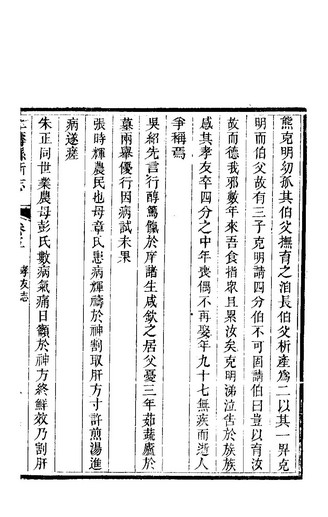 熊克明幼孤其伯父撫育之洎長伯父析產為二以其一界克
明而伯父故有三子克明請四分伯不可固請伯曰豈以育汝
故而德我邪數年來吾食指衆且累汝矣克明涕泣告於族族
感其孝友卒四分之中年喪偶不再娶年九十七無疾而逝人
爭稱焉
吳紹先言行醇篤儀於庠諸生咸欽之居父憂三年茹蔬廬於
墓兩舉優行因病試未果
張時輝農民也母章氏患病輝禱於神割取肝方寸許煎湯進
病遂瘥
朱正同世業農母彭氏數病氣痛日籲於神方終鮮效乃割肝
孝友志